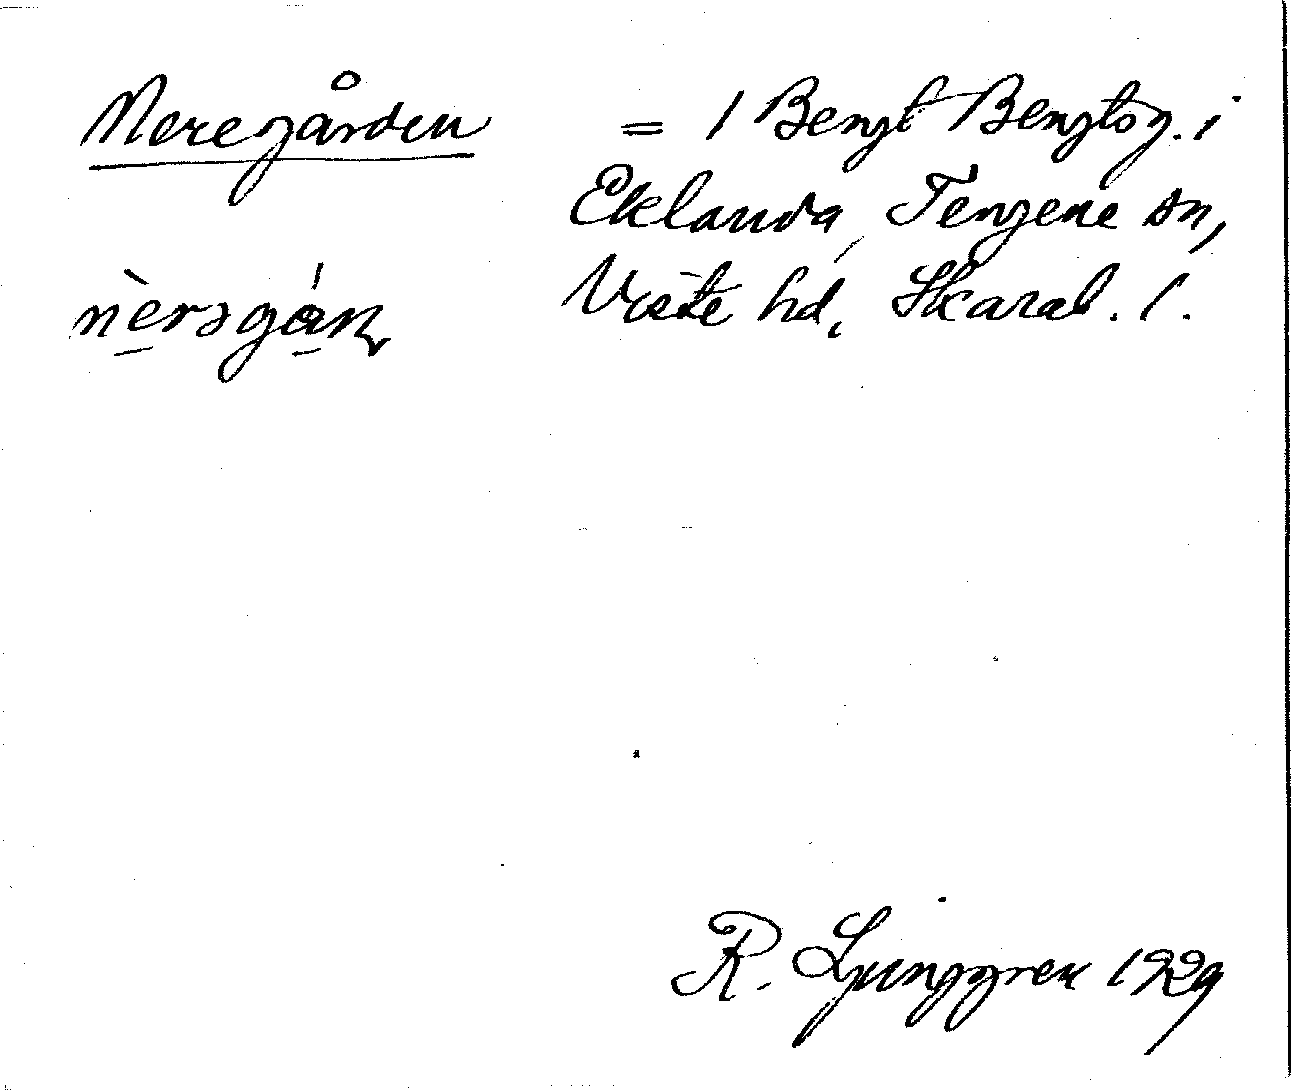 Neregården = 1 Bengt Bengtsg. i
Eklanda, Tengene sn,
Viste hd, Skarab. l.
R. Ljunggren 1929